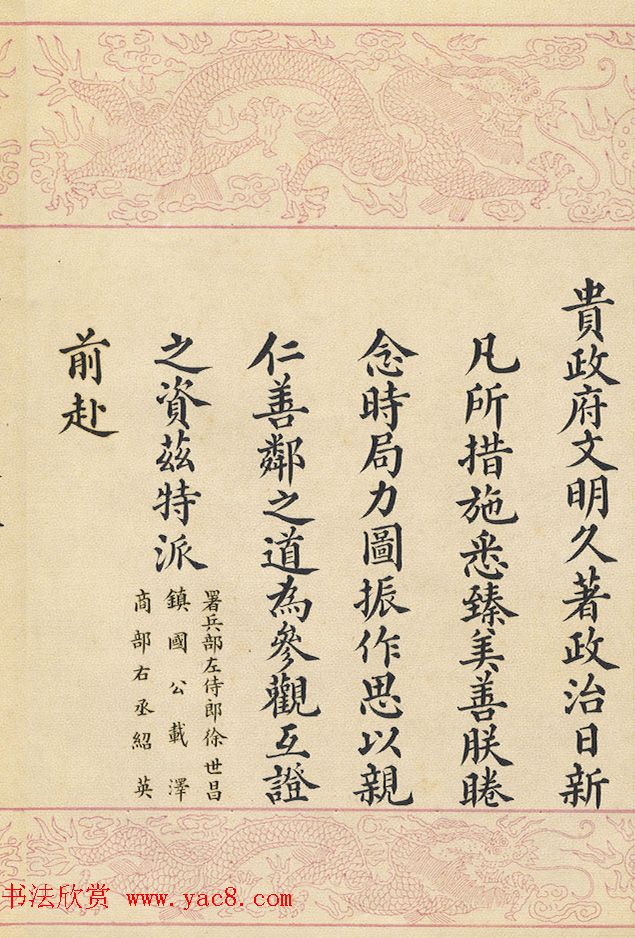 貴政府文明久著政治日新
凡所措施悉臻美善朕睠
念時局力圖振作思以親
仁善鄰之道為參觀互證
之資茲特派
鎮國公載澤
署兵部左侍郎徐世昌
商部右丞紹英
前赴
书法欣赏 www.yac8.com